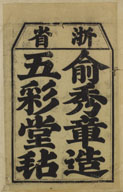 浙省
俞秀章造
五彩堂玷